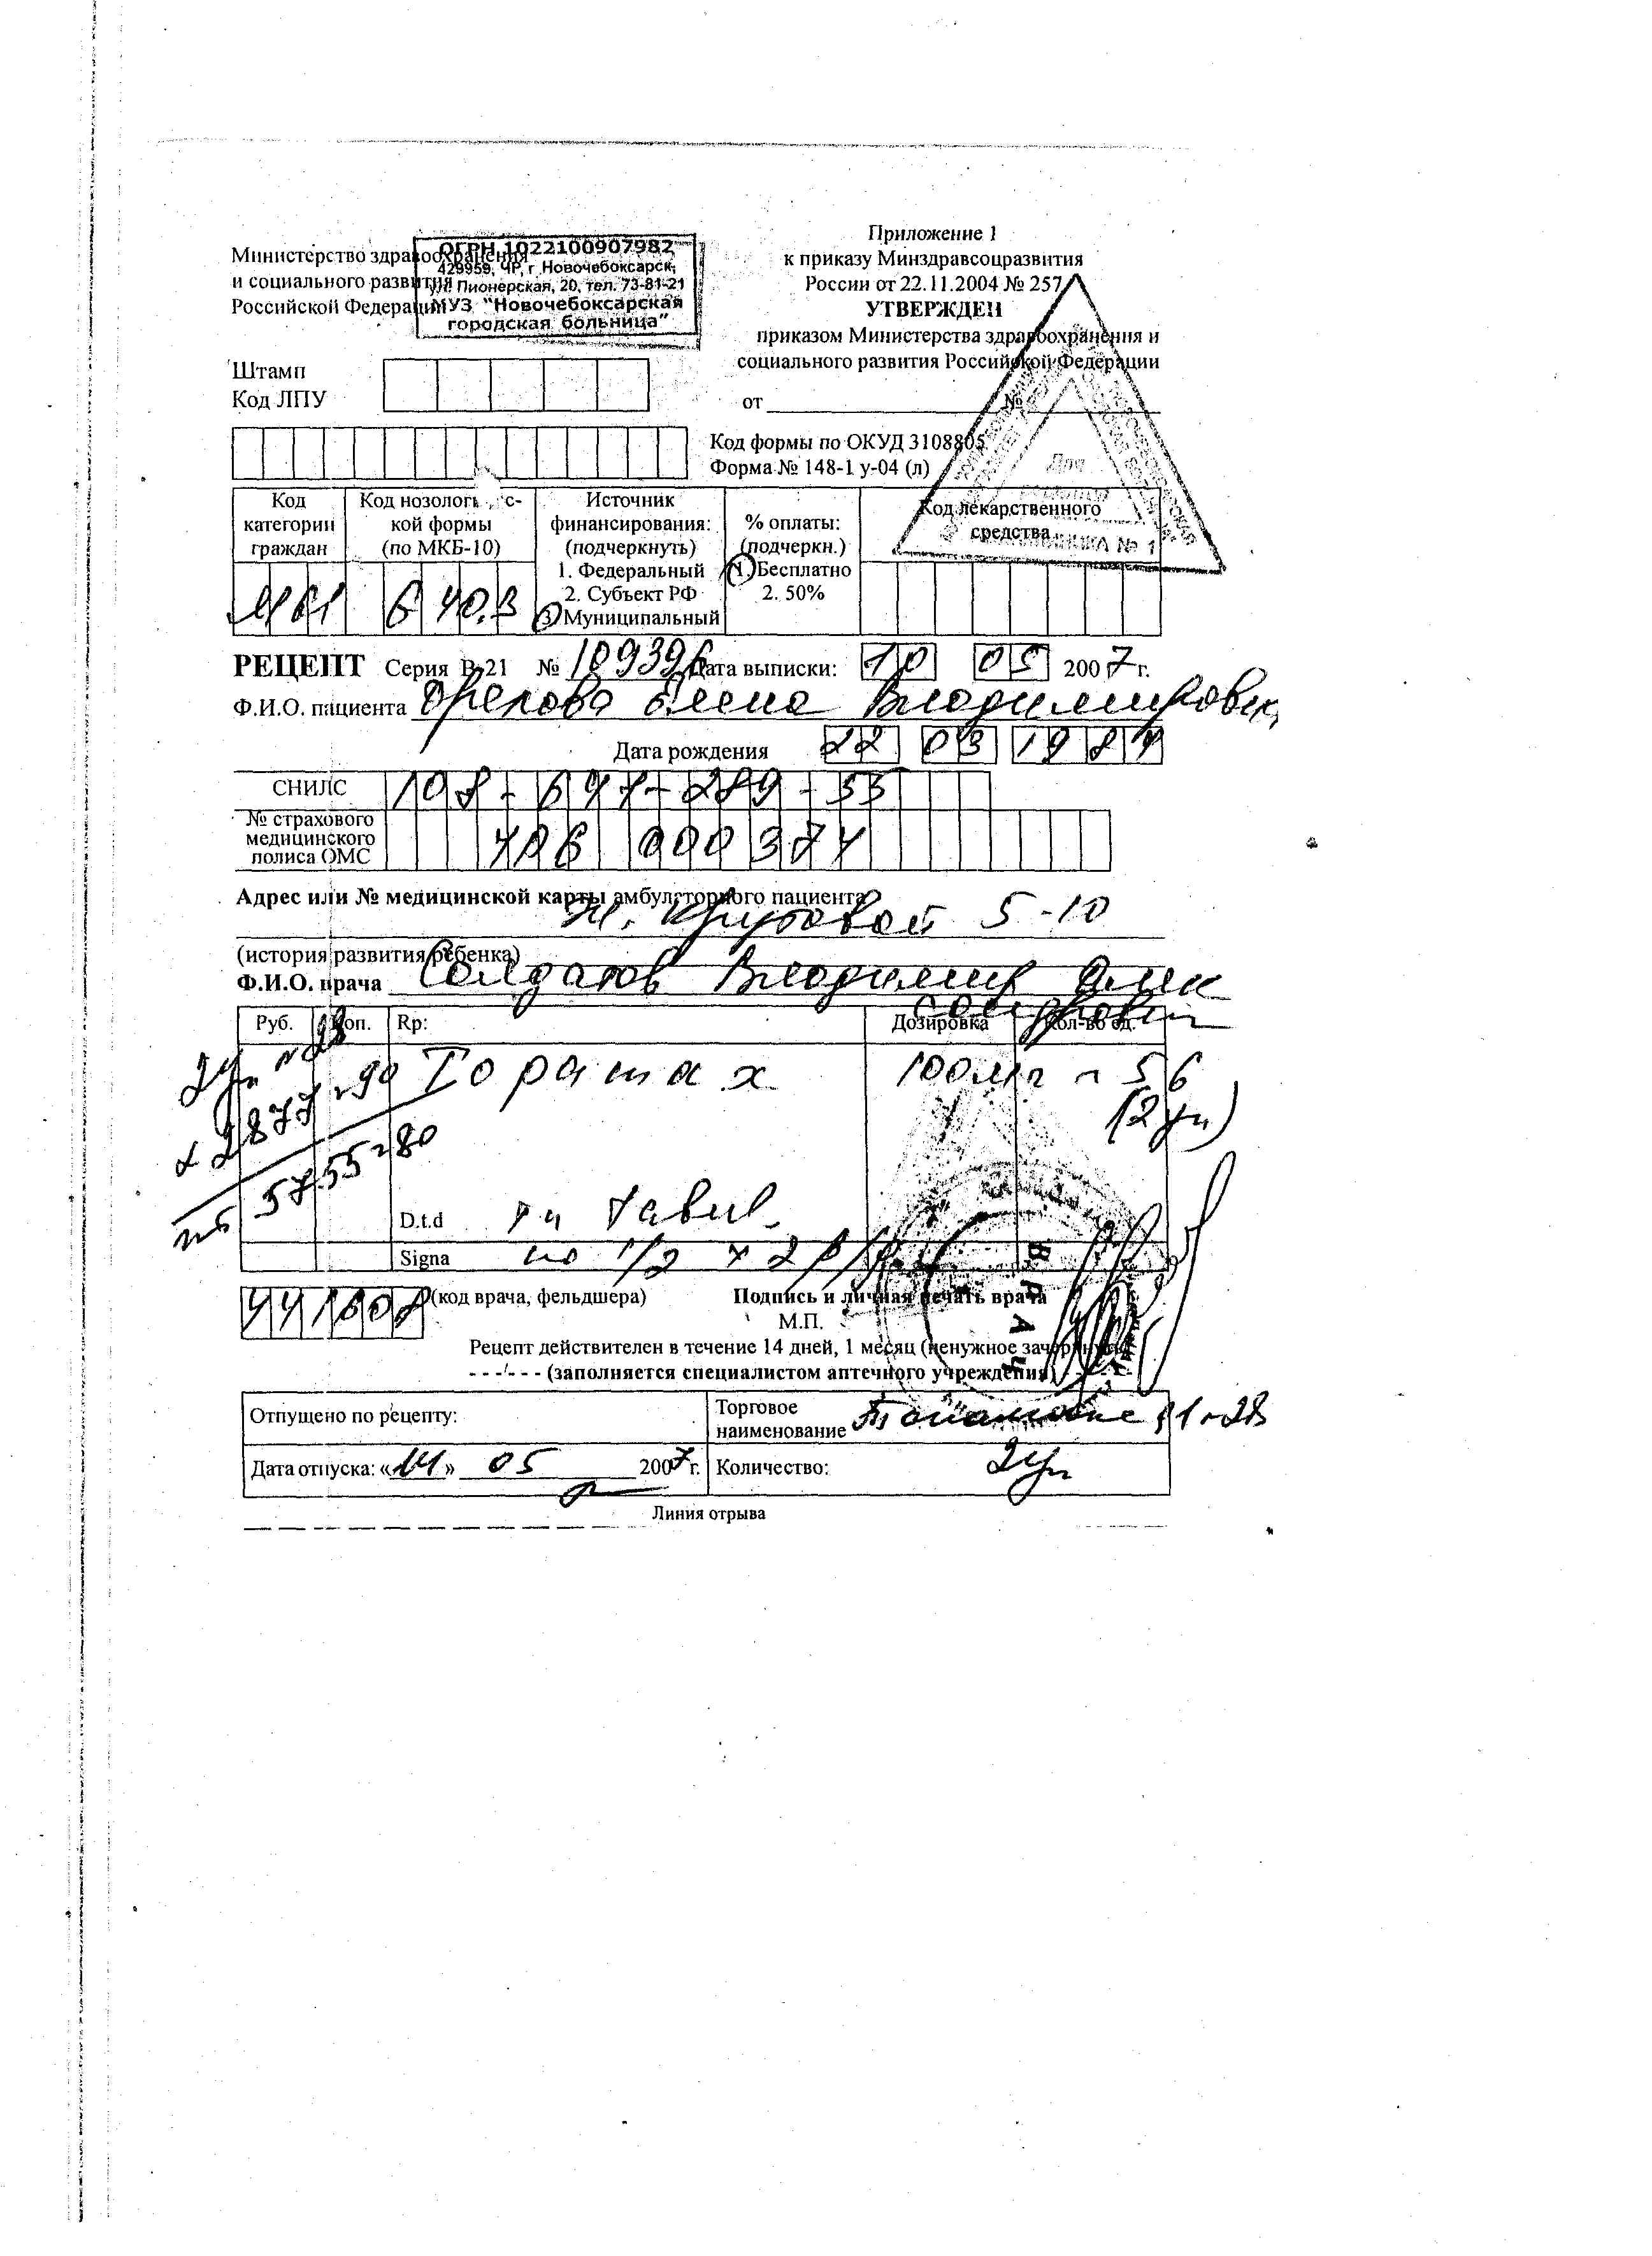 Министерство здравоохранения
и социального развития
Российской Федерации
ОГРН 1022100907982
429959, ЧР, г. Новочебоксарск,
ул. Пионерская, 20, тел. 73-81-21
МУЗ "Новочебоксарская
городская больница"
Приложение 1
к приказу Минздравсоцразвития
России от 22.11.2004 № 257
УТВЕРЖДЕН
приказом Министерства здравоохранения и
социального развития Российской Федерации
от №
Штамп
Код ЛПУ
Код формы по ОКУД 3108805
Форма № 148-1 у-04 (л)
Для
Код категории граждан
Код нозологической формы (по МКБ-10)
Источник финансирования: (подчеркнуть)
1. Федеральный
2. Субъект РФ
3. Муниципальный
% оплаты: (подчеркн.)
1. Бесплатно
2. 50%
Код лекарственного средства
G 40.3
РЕЦЕПТ Серия В-21 № 109396 Дата выписки: 10 05 2007 г.
Ф.И.О. пациента Орехова Елена Владимировн
Дата рождения 22 03 198
СНИЛС 108-697-289-55
№ страхового медицинского полиса ОМС 706 000374
Адрес или № медицинской карты амбулаторного пациента
5-10
(история развития ребенка)
Ф.И.О. врача Солдатов Владимир Алек
сандрович
Руб. Коп. Rp: Дозировка Кол-во ед.
Топамах 100мг n 56
(2 уп)
2уп n28
x 2877=90
5755=80
D.t.d
Signa по 1/2 x 2 р/
(код врача, фельдшера) Подпись и личная печать врача
М.П.
ВРАЧ
Рецепт действителен в течение 14 дней, 1 месяц (ненужное зачеркнуть)
- - -'- - - (заполняется специалистом аптечного учреждения)
Отпущено по рецепту:
Торговое наименование
Дата отпуска: «14» 05 2007 г.
Количество: 2уп
Линия отрыва